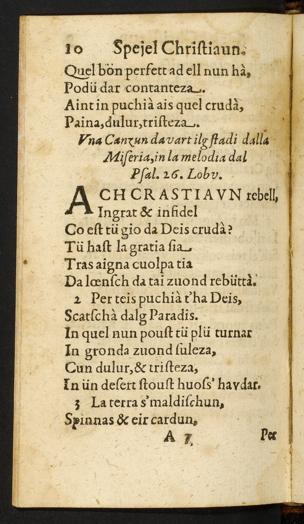 10 Spejel Christiaun.
Quel bön perfett ad ell nun hà,
Podü dar contanteza.
Aint in puchià ais quel crudà,
Paina, dulur, tristeza.
Vna Canzun da vart ilg stadi dalla
Miseria, in la melodia dal
Psal. 26. Lobv.
ACH CRASTIAVN rebell,
Ingrat & infidel
Co est tü gio da Deis crudà?
Tü hast la gratia sia
Tras aigna cuolpa tia
Da lœnsch da tai zuond rebüttà.
2 Per teis puchià t'ha Deis,
Scatschà dalg Paradis.
In quel nun poust tü plü turnar
In gronda zuond suleza,
Cun dulur, & tristeza,
In ün desert stoust huoss' havdar.
3 La terra s'maldischun,
Spinnas & eir cardun,
A 7 Per